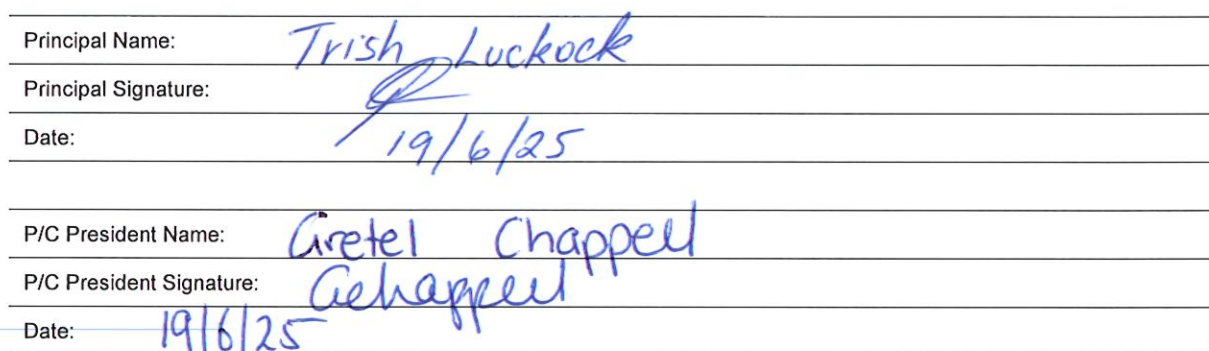 Principal Name: Trish Luckock
Principal Signature:
Date: 19/6/25
P/C President Name: Gretel Chappell
P/C President Signature: GChappell
Date: 19/6/25